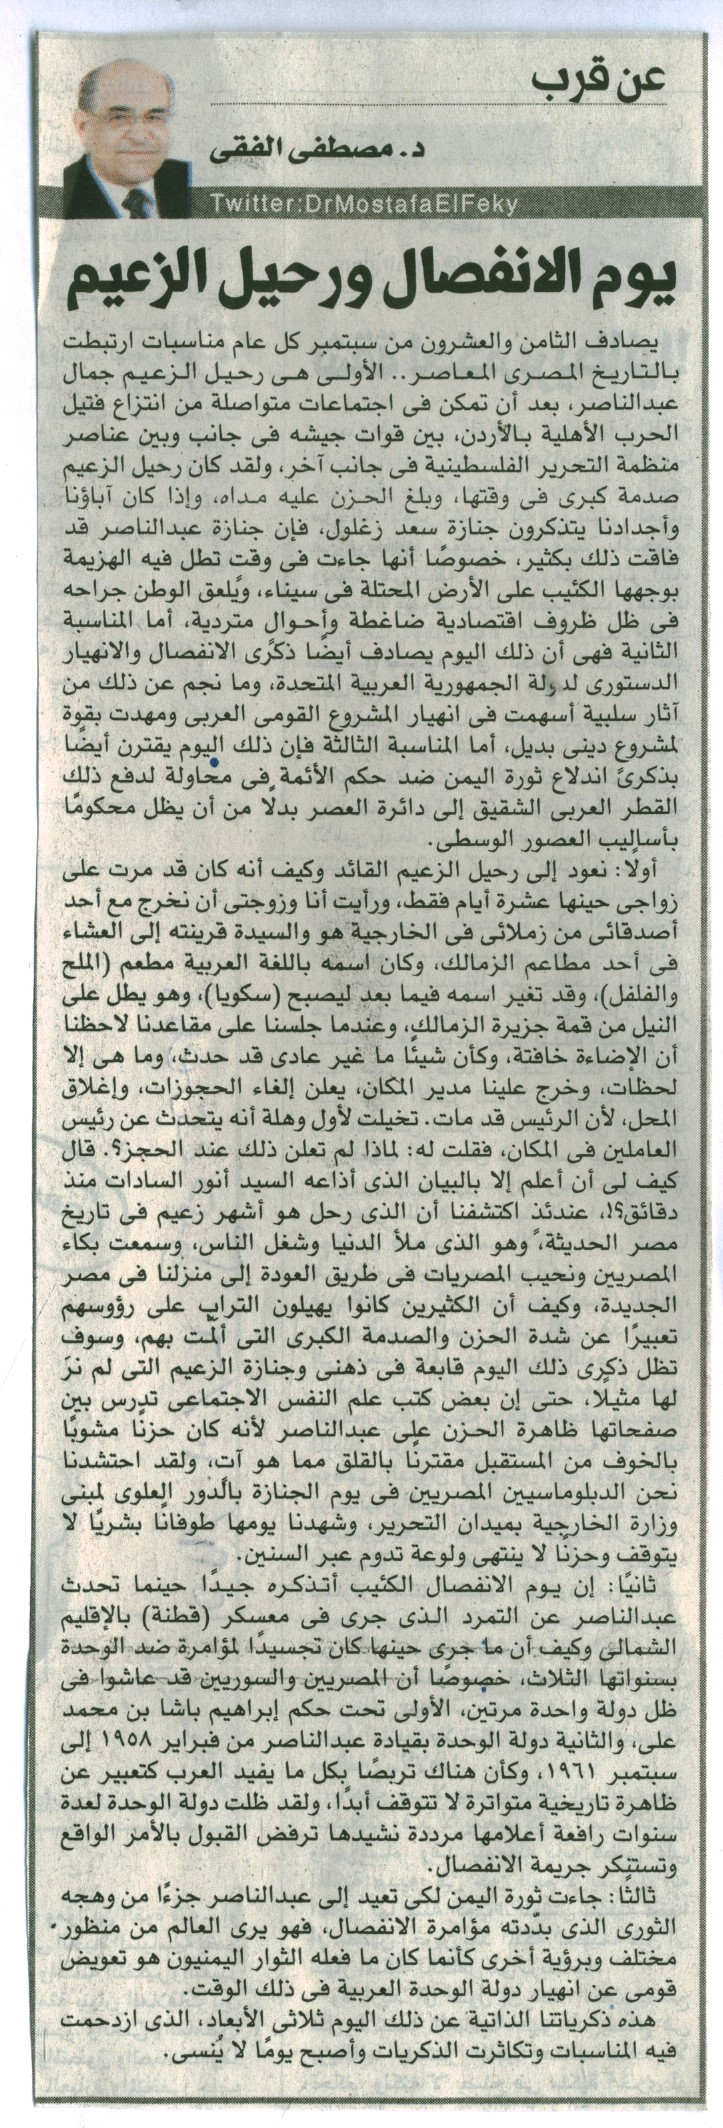 عن قرب
د. مصطفى الفقى
Twitter:DrMostafaElFeky
يوم الانفصال ورحيل الزعيم
يصادف الثامن والعشرون من سبتمبر كل عام مناسبات ارتبطت
بالتاريخ المصرى المعاصر.. الأولى هى رحيل الزعيم جمال
عبدالناصر، بعد أن تمكن فى اجتماعات متواصلة من انتزاع فتيل
الحرب الأهلية بالأردن، بين قوات جيشه فى جانب وبين عناصر
منظمة التحرير الفلسطينية فى جانب آخر، ولقد كان رحيل الزعيم
صدمة كبرى فى وقتها، وبلغ الحزن عليه مداه، وإذا كان آباؤنا
وأجدادنا يتذكرون جنازة سعد زغلول، فإن جنازة عبدالناصر قد
فاقت ذلك بكثير، خصوصًا أنها جاءت فى وقت تطل فيه الهزيمة
بوجهها الكئيب على الأرض المحتلة فى سيناء، ويُلعق الوطن جراحه
فى ظل ظروف اقتصادية ضاغطة وأحوال متردية، أما المناسبة
الثانية فهى أن ذلك اليوم يصادف أيضًا ذكرى الانفصال والانهيار
الدستورى لدولة الجمهورية العربية المتحدة، وما نجم عن ذلك من
آثار سلبية أسهمت فى انهيار المشروع القومى العربى ومهدت بقوة
لمشروع دينى بديل، أما المناسبة الثالثة فإن ذلك اليوم يقترن أيضًا
بذكرى اندلاع ثورة اليمن ضد حكم الأئمة فى محاولة لدفع ذلك
القطر العربى الشقيق إلى دائرة العصر بدلًا من أن يظل محكومًا
بأساليب العصور الوسطى.
أولًا: نعود إلى رحيل الزعيم القائد وكيف أنه كان قد مرت على
زواجى حينها عشرة أيام فقط، ورأيت أنا وزوجتى أن نخرج مع أحد
أصدقائى من زملائى فى الخارجية هو والسيدة قرينته إلى العشاء
فى أحد مطاعم الزمالك، وكان اسمه باللغة العربية مطعم (الملح
والفلفل)، وقد تغير اسمه فيما بعد ليصبح (سكويا)، وهو يطل على
النيل من قمة جزيرة الزمالك، وعندما جلسنا على مقاعدنا لاحظنا
أن الإضاءة خافتة، وكأن شيئًا ما غير عادى قد حدث، وما هى إلا
لحظات، وخرج علينا مدير المكان، يعلن إلغاء الحجوزات، وإغلاق
المحل، لأن الرئيس قد مات. تخيلت لأول وهلة أنه يتحدث عن رئيس
العاملين فى المكان، فقلت له: لماذا لم تعلن ذلك عند الحجز؟. قال
كيف لى أن أعلم إلا بالبيان الذى أذاعه السيد أنور السادات منذ
دقائق؟!، عندئذ اكتشفنا أن الذى رحل هو أشهر زعيم فى تاريخ
مصر الحديثة، وهو الذى ملأ الدنيا وشغل الناس، وسمعت بكاء
المصريين ونحيب المصريات فى طريق العودة إلى منزلنا فى مصر
الجديدة، وكيف أن الكثيرين كانوا يهيلون التراب على رؤوسهم
تعبيرًا عن شدة الحزن والصدمة الكبرى التى ألمّت بهم، وسوف
تظل ذكرى ذلك اليوم قابعة فى ذهنى وجنازة الزعيم التى لم نرَ
لها مثيلًا، حتى إن بعض كتب علم النفس الاجتماعى تدرس بين
صفحاتها ظاهرة الحزن على عبدالناصر لأنه كان حزنًا مشوبًا
بالخوف من المستقبل مقترنًا بالقلق مما هو آتٍ، ولقد احتشدنا
نحن الدبلوماسيين المصريين فى يوم الجنازة بالدور العلوى لمبنى
وزارة الخارجية بميدان التحرير، وشهدنا يومها طوفانًا بشريًا لا
يتوقف وحزنًا لا ينتهى ولوعة تدوم عبر السنين.
ثانيًا: إن يوم الانفصال الكئيب أتذكره جيدًا حينما تحدث
عبدالناصر عن التمرد الذى جرى فى معسكر (قطنة) بالإقليم
الشمالى وكيف أن ما جرى حينها كان تجسيدًا لمؤامرة ضد الوحدة
بسنواتها الثلاث، خصوصًا أن المصريين والسوريين قد عاشوا فى
ظل دولة واحدة مرتين، الأولى تحت حكم إبراهيم باشا بن محمد
على، والثانية دولة الوحدة بقيادة عبدالناصر من فبراير ١٩٥٨ إلى
سبتمبر ١٩٦١، وكأن هناك تربصًا بكل ما يفيد العرب كتعبير عن
ظاهرة تاريخية متواترة لا تتوقف أبدًا، ولقد ظلت دولة الوحدة لعدة
سنوات رافعة أعلامها مرددة نشيدها ترفض القبول بالأمر الواقع
وتستنكر جريمة الانفصال.
ثالثًا: جاءت ثورة اليمن لكى تعيد إلى عبدالناصر جزءًا من وهجه
الثورى الذى بدّدته مؤامرة الانفصال، فهو يرى العالم من منظور
مختلف وبرؤية أخرى كأنما كان ما فعله الثوار اليمنيون هو تعويض
قومى عن انهيار دولة الوحدة العربية فى ذلك الوقت.
هذه ذكرياتنا الذاتية عن ذلك اليوم ثلاثى الأبعاد، الذى ازدحمت
فيه المناسبات وتكاثرت الذكريات وأصبح يومًا لا يُنسى.